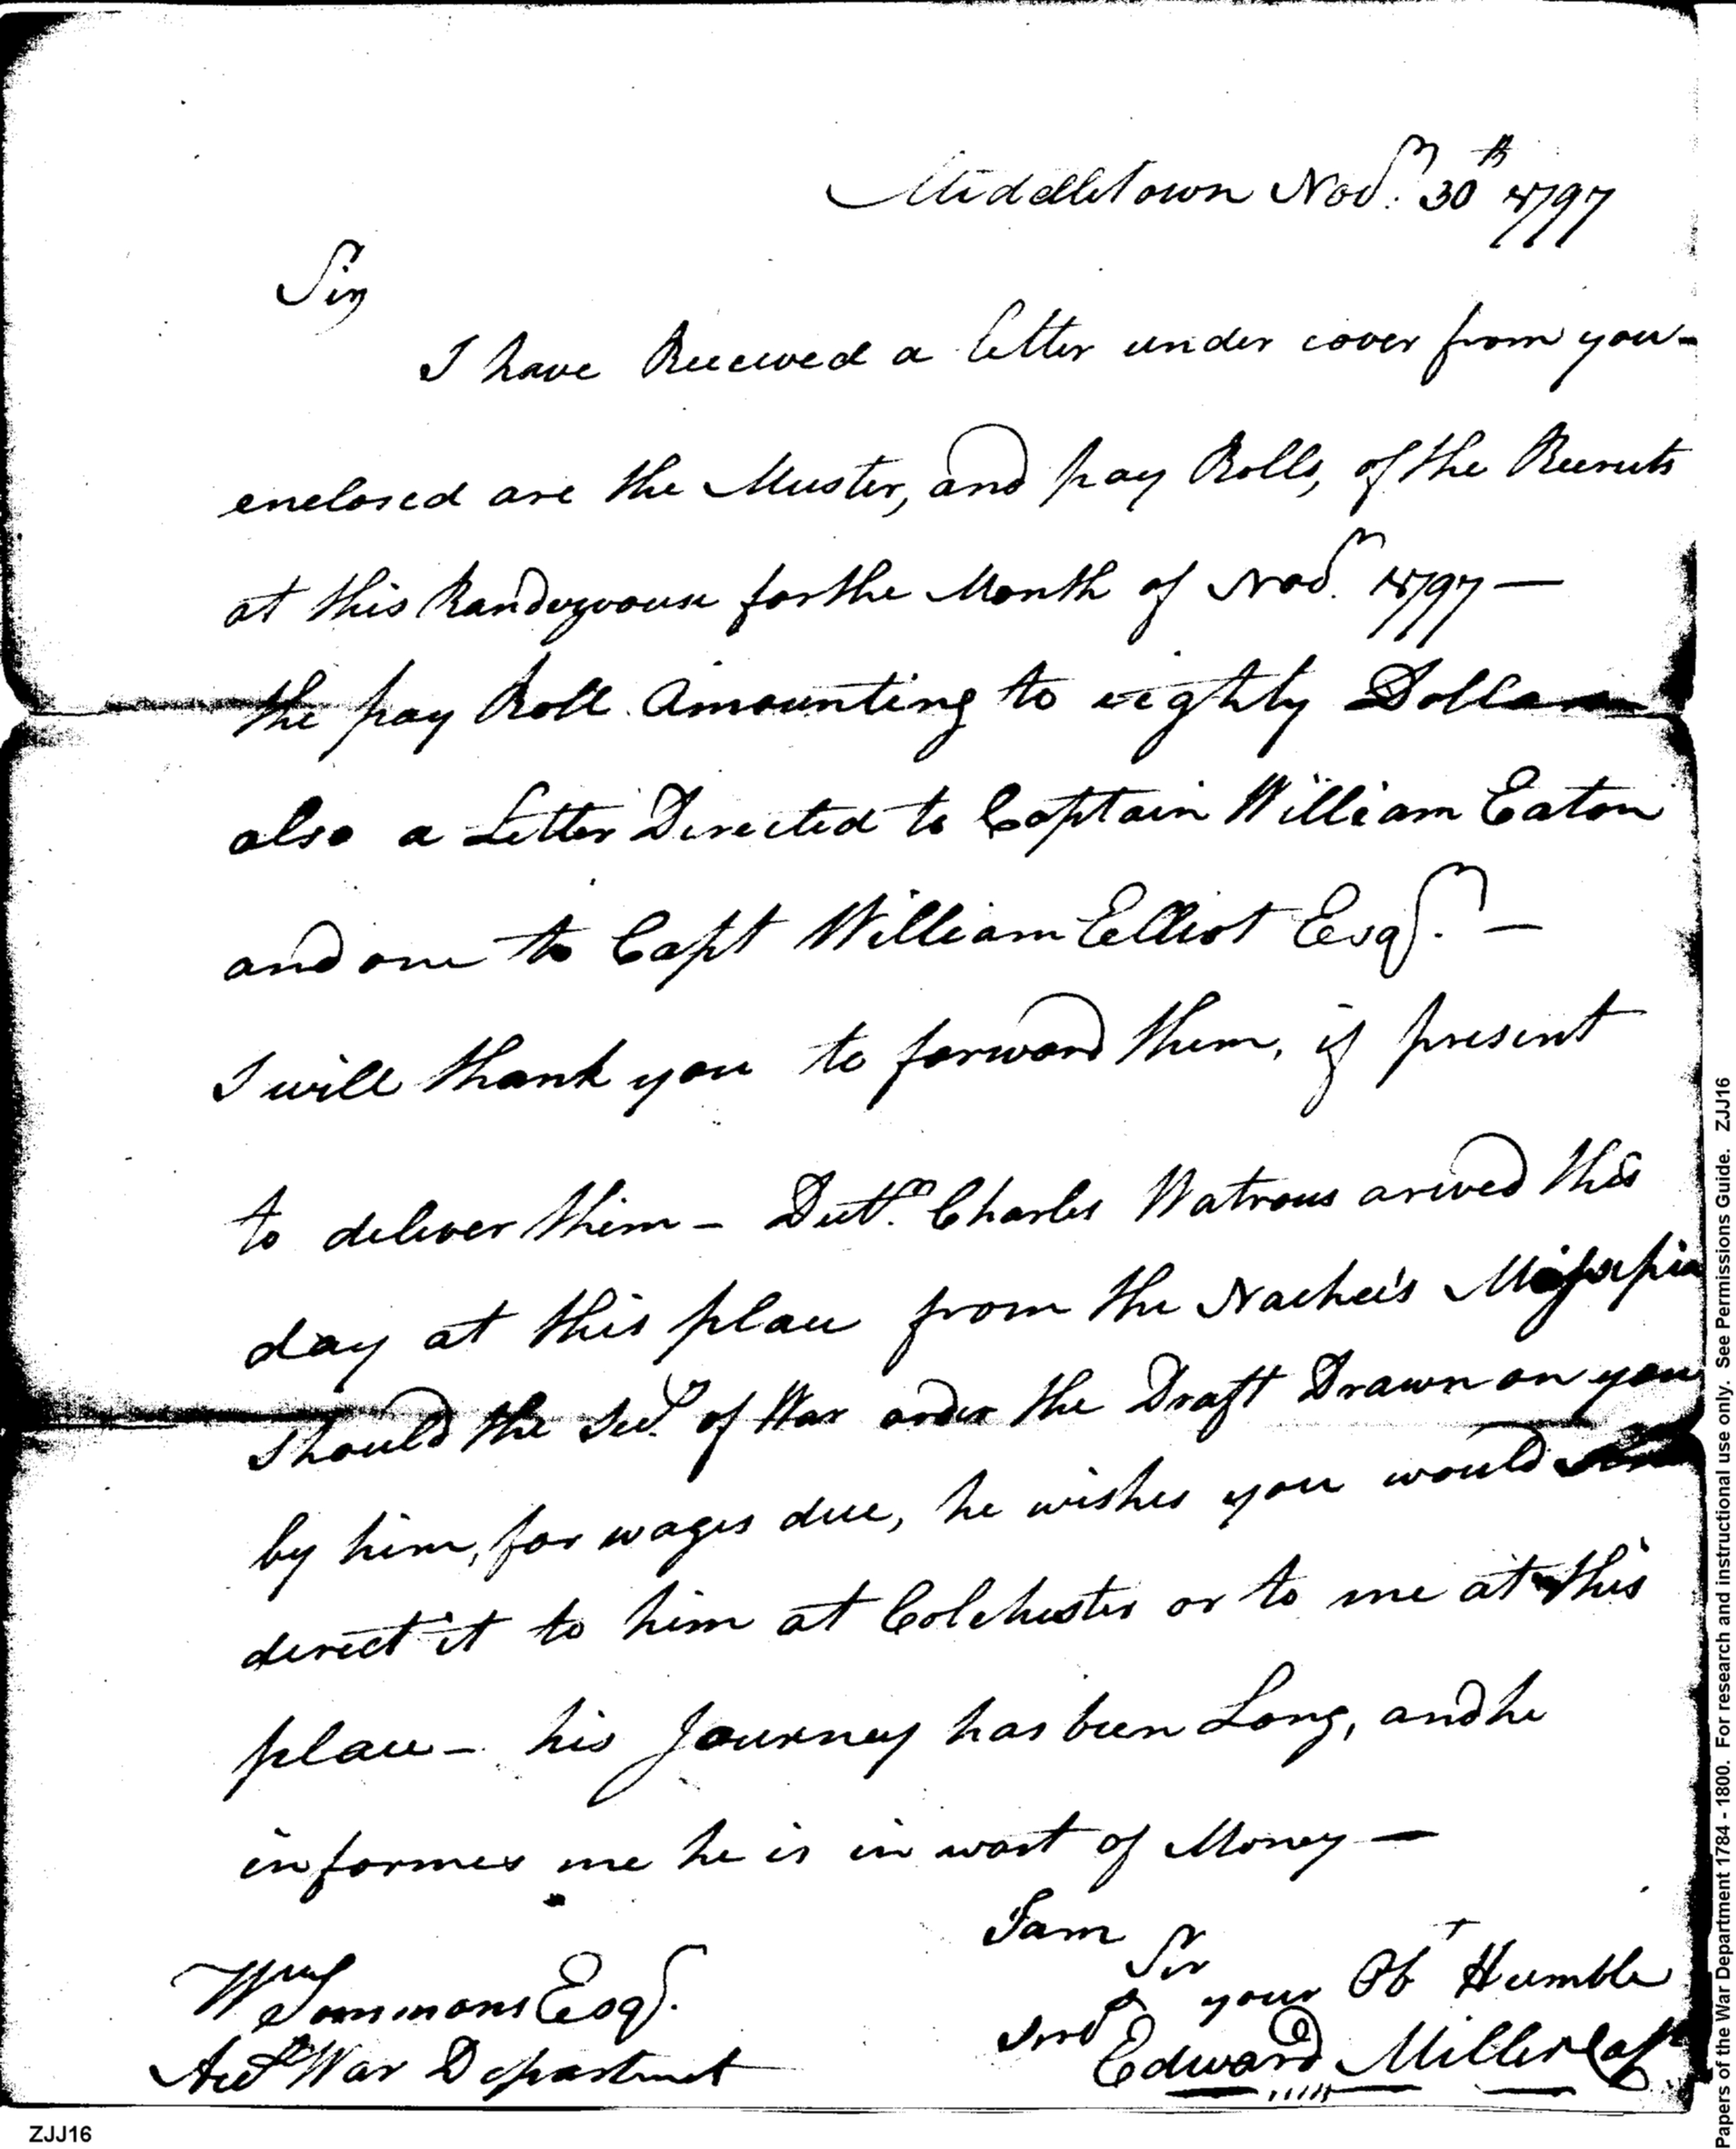 Middletown Novr. 30th 1797
Sir
I have Received a letter under cover from you-
enclosed are the Muster, and pay Rolls, of the Recruits
at this Randezvouse for the Month of Novr. 1797 —
the pay Roll Amounting to eighty Dollars
also a Letter Directed to Captain William Eaton
and one to Capt William Elliot Esqr. —
I will thank you to forward them, if present
to deliver them — Charles Watrous arived this
day at this place from the Nachei's
should the Secy. of War order the Draft Drawn on you
by him, for wages due, he wishes you would
derect it to him at Colchester or to me at this
place — his Journey has been Long, and he
informes me he is in want of Money —
I am
Sir
your Obt Humble
Servt
Edward Miller Capt
Wm Simmons Esqr.
Acct War Department
ZJJ16
Papers of the War Department 1784 - 1800. For research and instructional use only. See Permissions Guide. ZJJ16